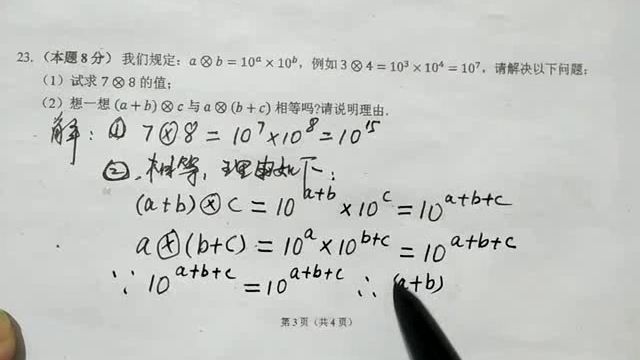 23.（本题 8 分）我们规定：a ⊗ b = 10^a × 10^b，例如 3 ⊗ 4 = 10^3 × 10^4 = 10^7，请解决以下问题：
（1）试求 7 ⊗ 8 的值；
（2）想一想 (a + b) ⊗ c 与 a ⊗ (b + c) 相等吗?请说明理由.
解：① 7⊗8 = 10^7×10^8 = 10^15
②.相等，理由如下：
(a+b)⊗c = 10^{a+b}×10^c = 10^{a+b+c}
a⊗(b+c) = 10^a×10^{b+c} = 10^{a+b+c}
∵ 10^{a+b+c} = 10^{a+b+c} ∴ (a+b)
第 3 页（共 4 页）